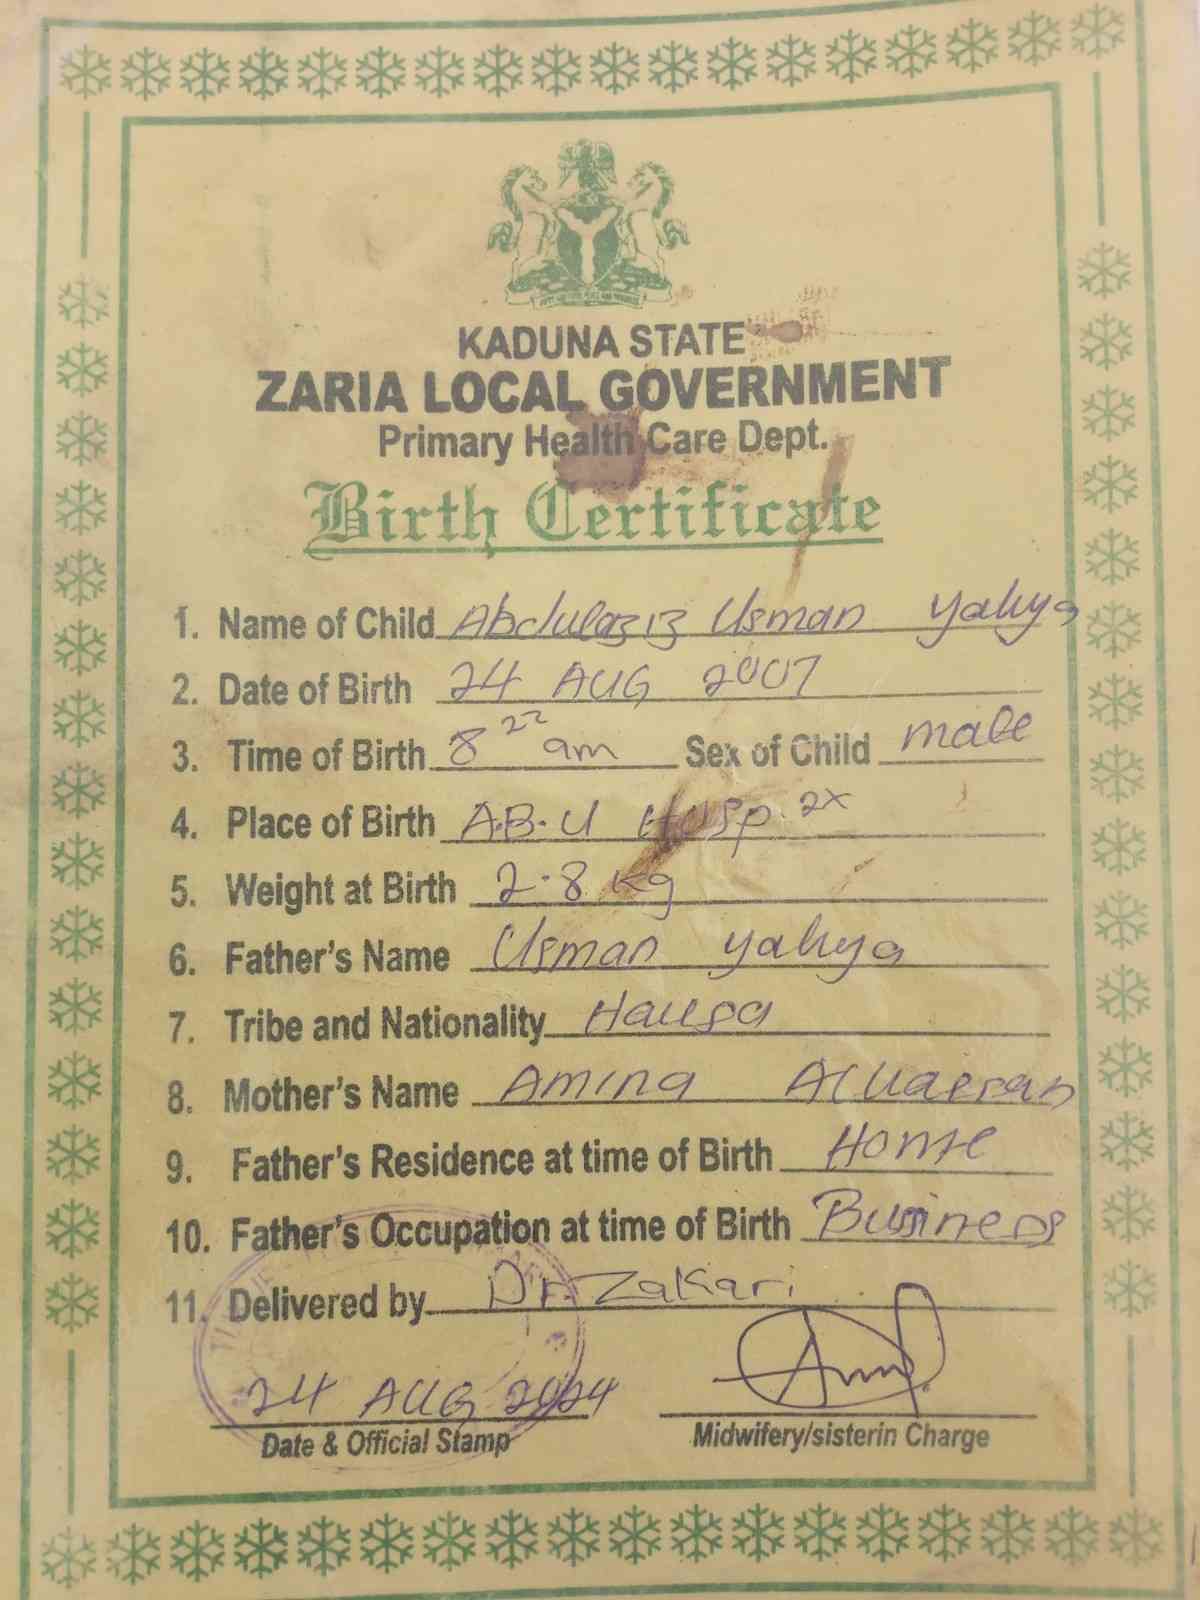 KADUNA STATE
ZARIA LOCAL GOVERNMENT
Primary Health Care Dept.
Birth Certificate
1. Name of Child Abdulaziz Usman Yahya
2. Date of Birth 24 AUG 2007
3. Time of Birth 8 22 am Sex of Child male
4. Place of Birth A.B.U Hosp.
5. Weight at Birth 2.8 kg
6. Father's Name Usman Yahya
7. Tribe and Nationality Hausa
8. Mother's Name Amina
9. Father's Residence at time of Birth Home
10. Father's Occupation at time of Birth Business
11. Delivered by Dr. Zakari
24 AUG 2024
Date & Official Stamp Midwifery/sisterin Charge